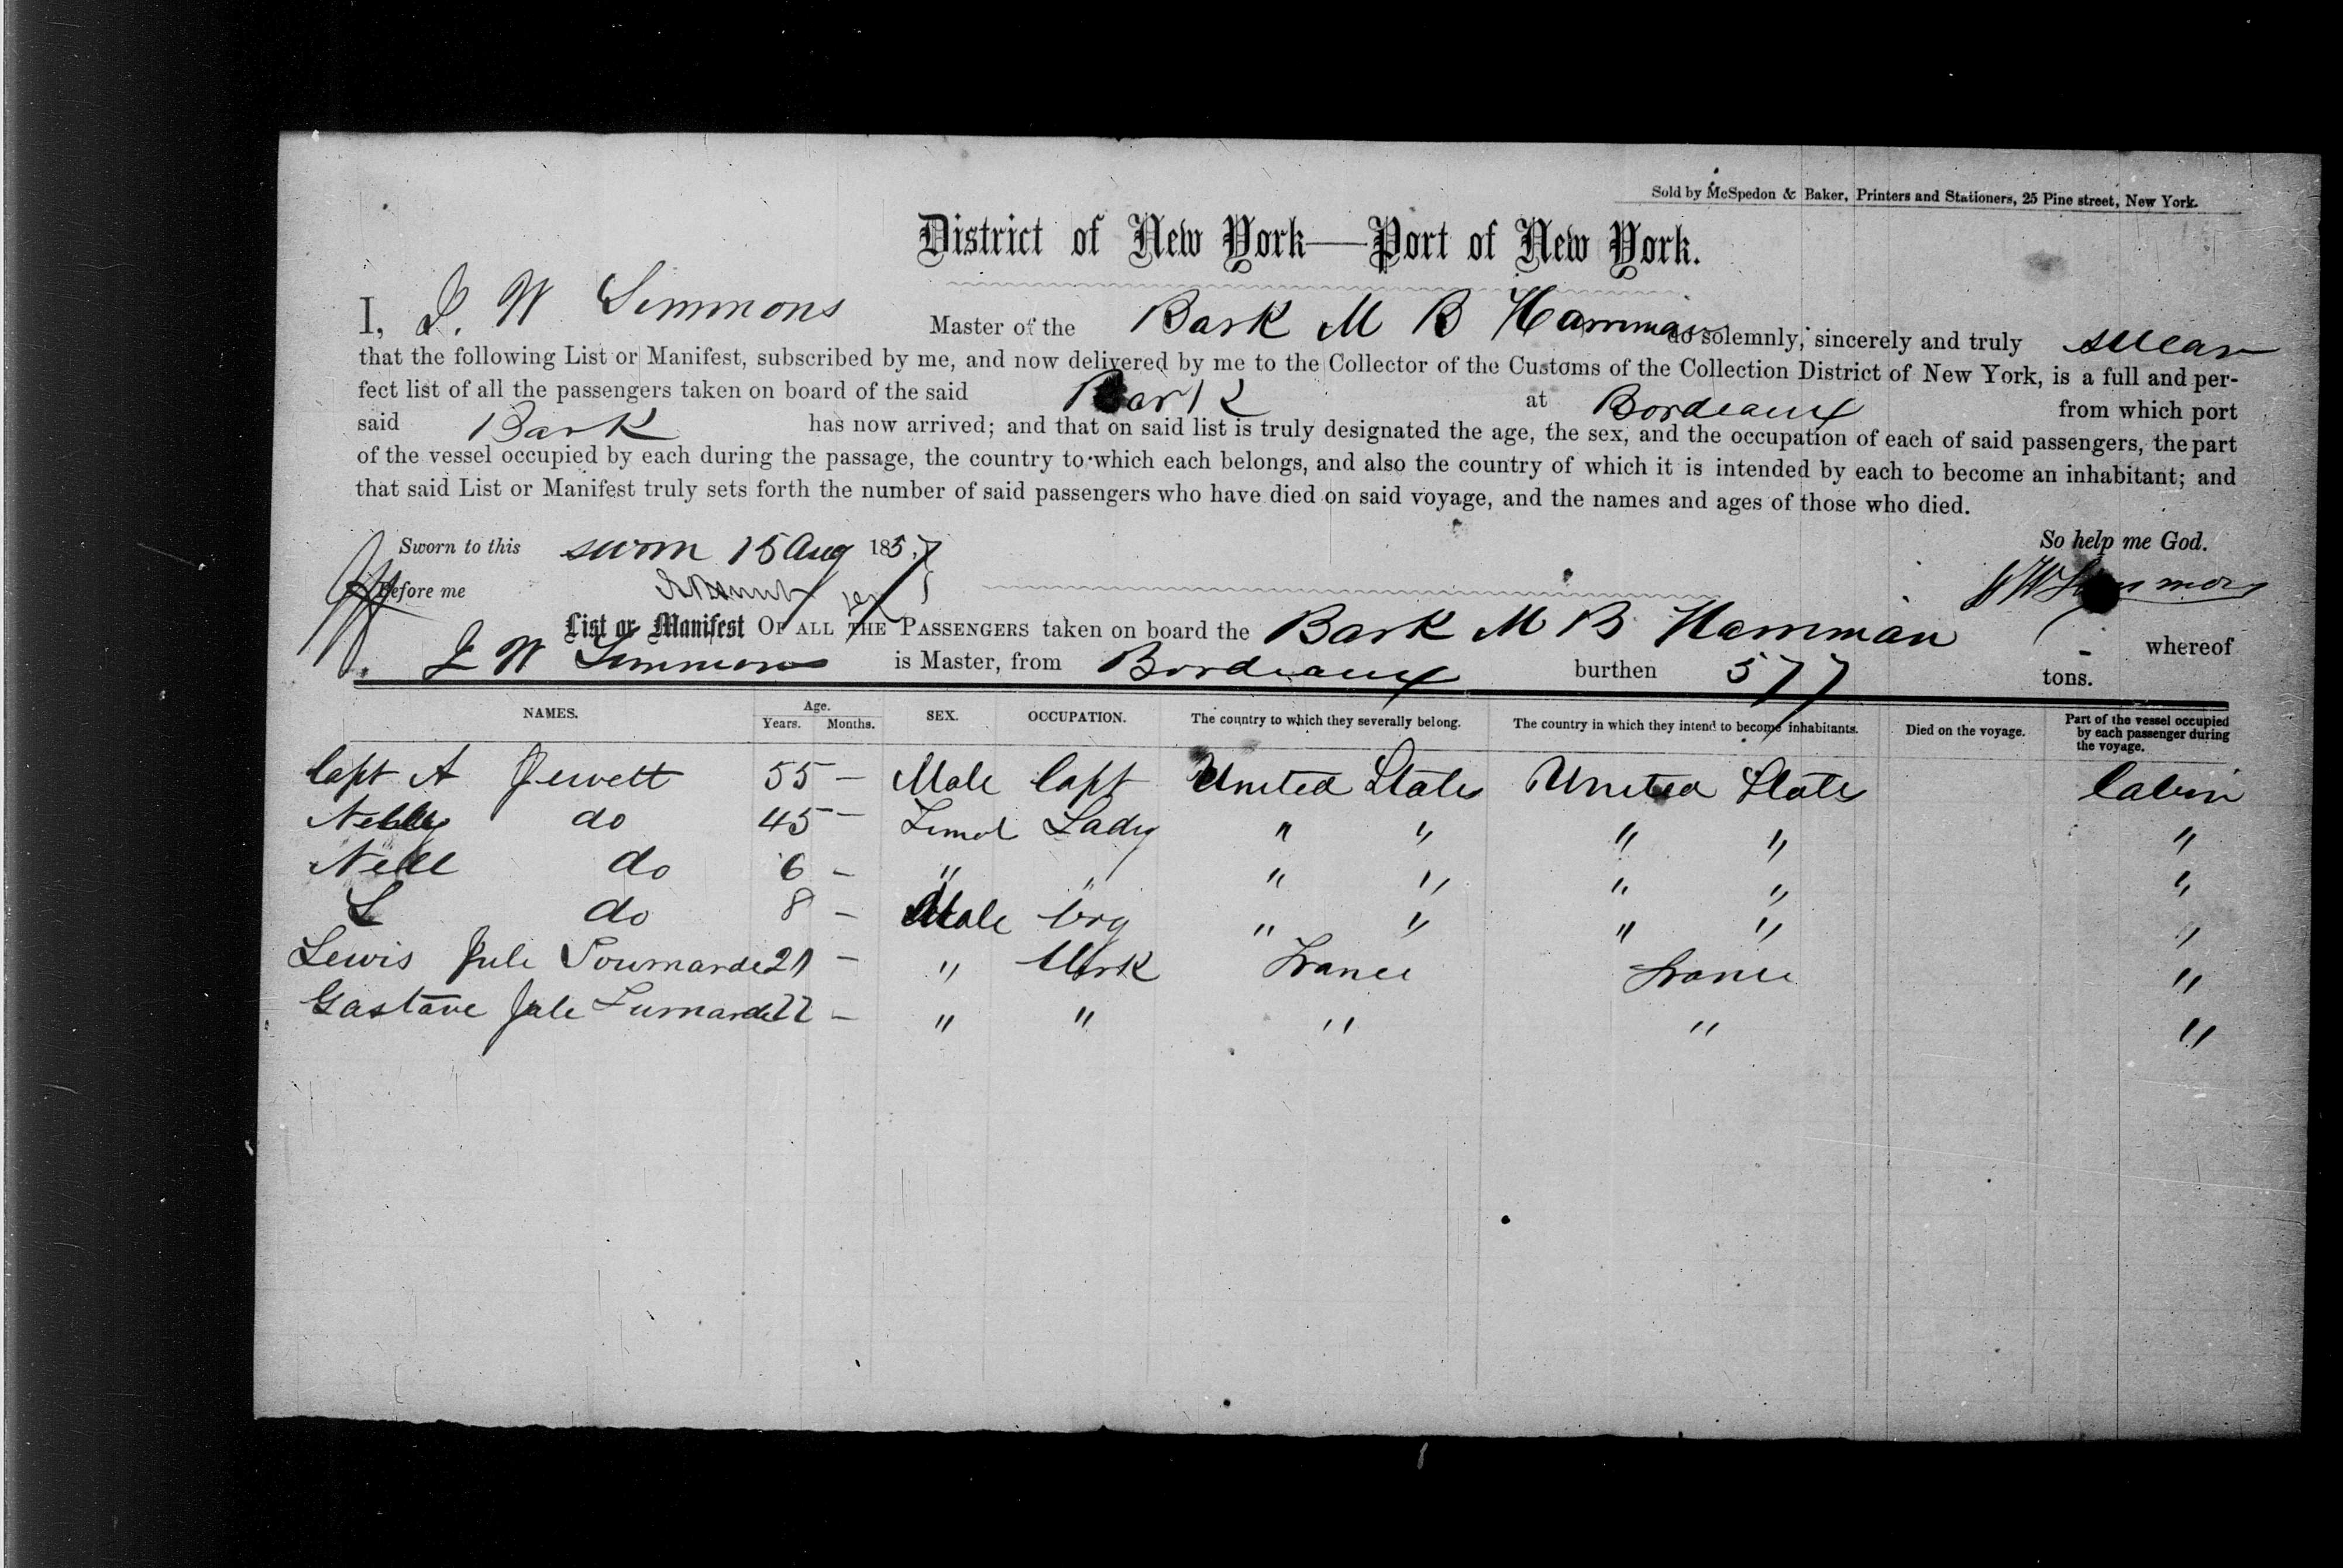 Sold by McSpedon & Baker, Printers and Stationers, 25 Pine street, New York.
District of New York—Port of New York.
I, J. W Simmons Master of the Bark M B Hamman do solemnly, sincerely and truly swear
that the following List or Manifest, subscribed by me, and now delivered by me to the Collector of the Customs of the Collection District of New York, is a full and per-
fect list of all the passengers taken on board of the said Bark at Bordeaux from which port
said Bark has now arrived; and that on said list is truly designated the age, the sex, and the occupation of each of said passengers, the part
of the vessel occupied by each during the passage, the country to which each belongs, and also the country of which it is intended by each to become an inhabitant; and
that said List or Manifest truly sets forth the number of said passengers who have died on said voyage, and the names and ages of those who died.
Sworn to this sworn 15 Aug 1857 So help me God.
Before me J W Simmons
List or Manifest OF ALL THE PASSENGERS taken on board the Bark M B Hamman whereof
J W Simmons is Master, from Bordeaux burthen 577 tons.
NAMES. Age. Years. Months. SEX. OCCUPATION. The country to which they severally belong. The country in which they intend to become inhabitants. Died on the voyage. Part of the vessel occupied by each passenger during the voyage.
Capt A Jewett 55 – Male Capt United States United States Cabin
Nelly do 45 – Femal Lady " " " " "
Nell do 6 – " " " " " " "
L do 8 – Male Boy " " " " "
Lewis Jule Soumarde 21 – " Clerk France France "
Gastave Jule Sumarde 22 – " " " " "